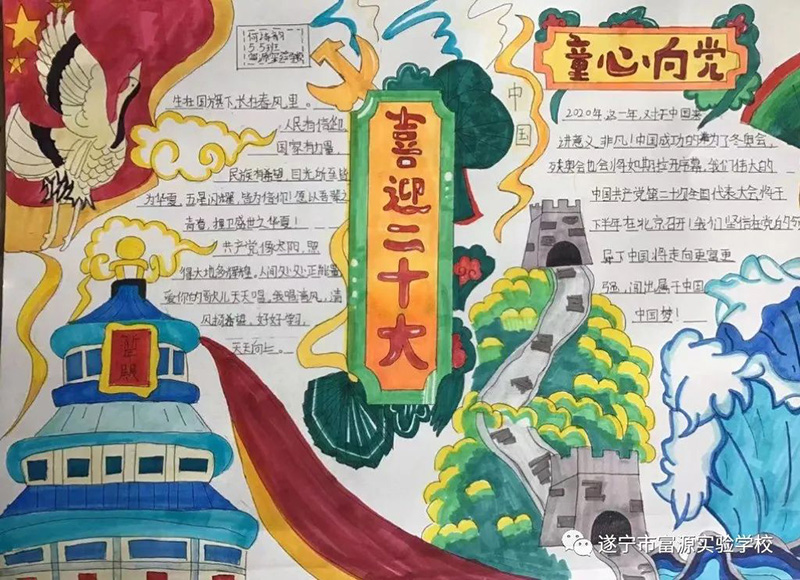 5.5班
喜迎二十大
童心向党
中国
生在国旗下,长在春风里。
人民有信仰
国家有力量
民族有希望,目光所至皆
为华夏,五星闪耀,皆为信仰!愿以吾辈之
青春,捍卫盛世之华夏!
共产党像太阳,照
爱你的歌儿天天唱,我唱
好好学习,
天天向上。
2020年,这一年,对于中国来
讲意义非凡!中国成功的举办了冬奥会,
残奥会也会将如期拉开序幕,我们伟大的
中国共产党第二十次全国代表大会将于
下半年在北京召开!我们坚信在党的
导下中国将走向更富更
强,闯出属于中国
中国梦!
遂宁市富源实验学校